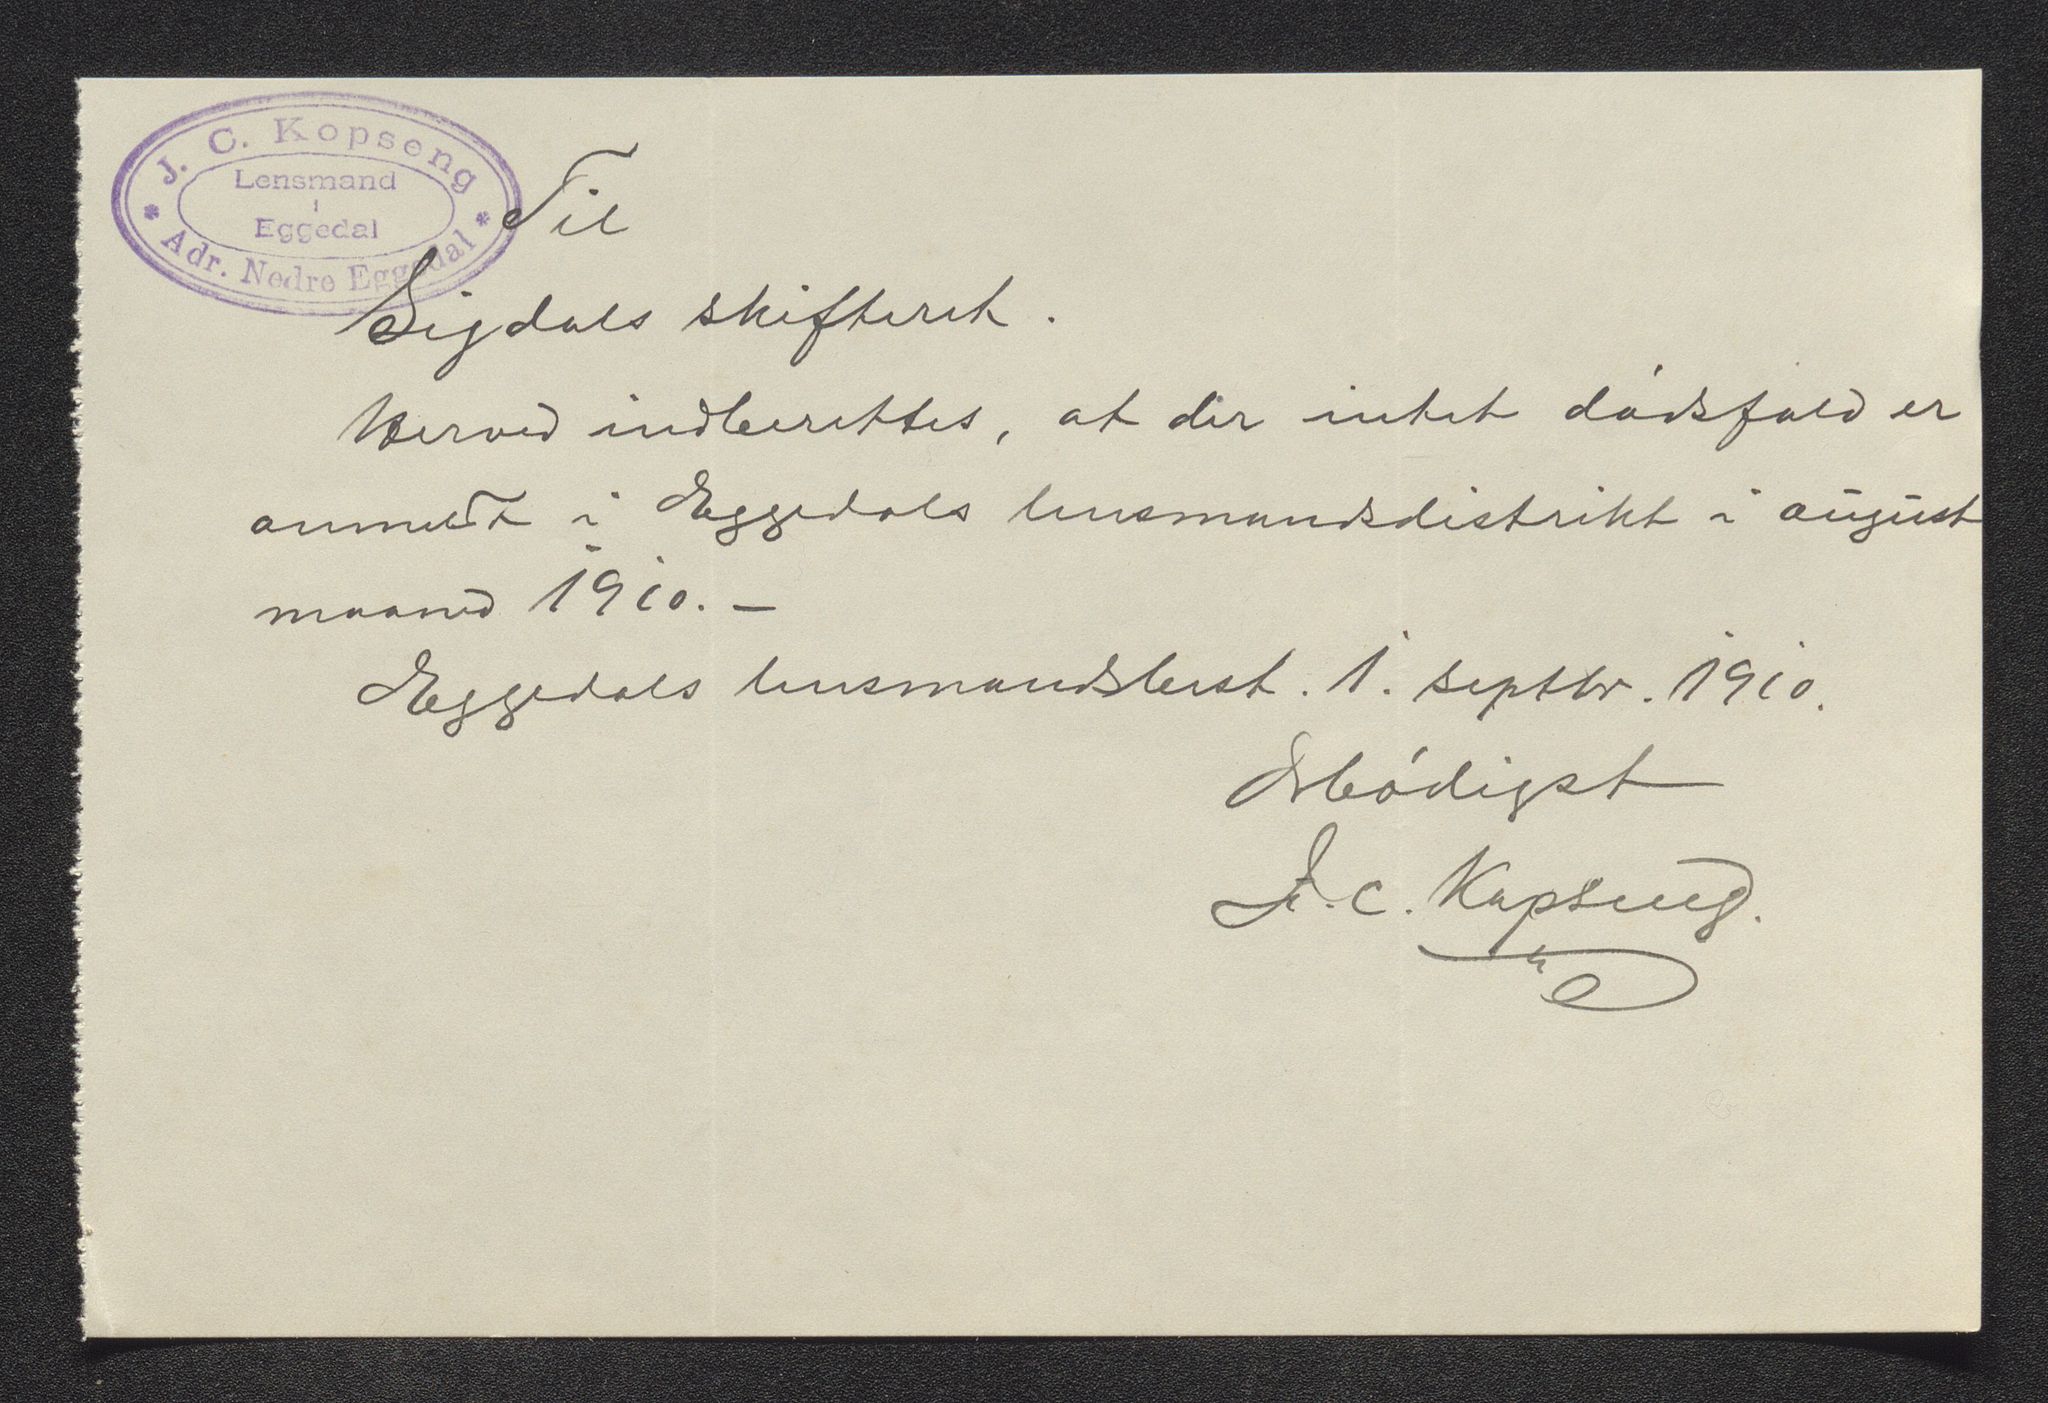 J. C. Kopseng
Lensmand
i
Eggedal
* Adr. Nedre Eggedal *
Til
Sigdals skifteret.
Herved indberettes, at der intet dódsfald er
anmeldt i Eggedals lensmandsdistrikt i august
maaned 1910. —
Eggedals lensmandsbest. 1. septbr. 1910.
Ærbódigst
J. C. Kopseng.